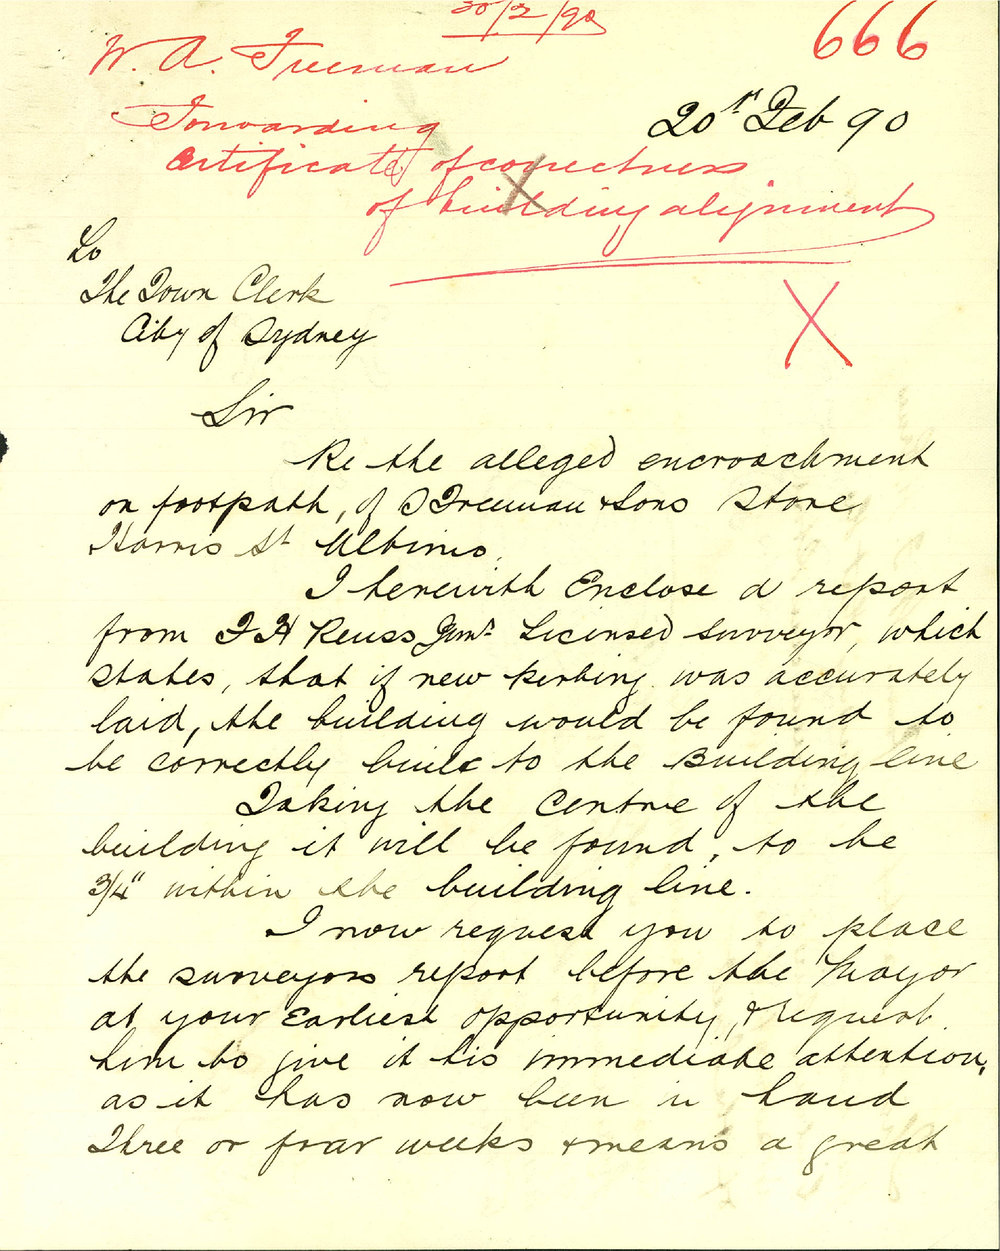 20/2/90
666
W. A. Freeman
Forwarding
Certificate of correctness
of building alignment
20th Feb 90
X
To
The Town Clerk
City of Sydney
X
Sir
Re the alleged encroachment
on footpath, of J Freeman & Sons Store
Harris St Ultimo.
I herewith Enclose a report
from F H Reuss Junr Licensed Surveyor, which
states, that if new kerbing was accurately
laid, the building would be found to
be correctly built to the Building line
Taking the centre of the
building it will be found, to be
3/4" within the building line.
I now request you to place
the surveyors report before the Mayor
at your Earliest opportunity, & request
him to give it his immediate attention,
as it has now been in hand
Three or four weeks & means a great